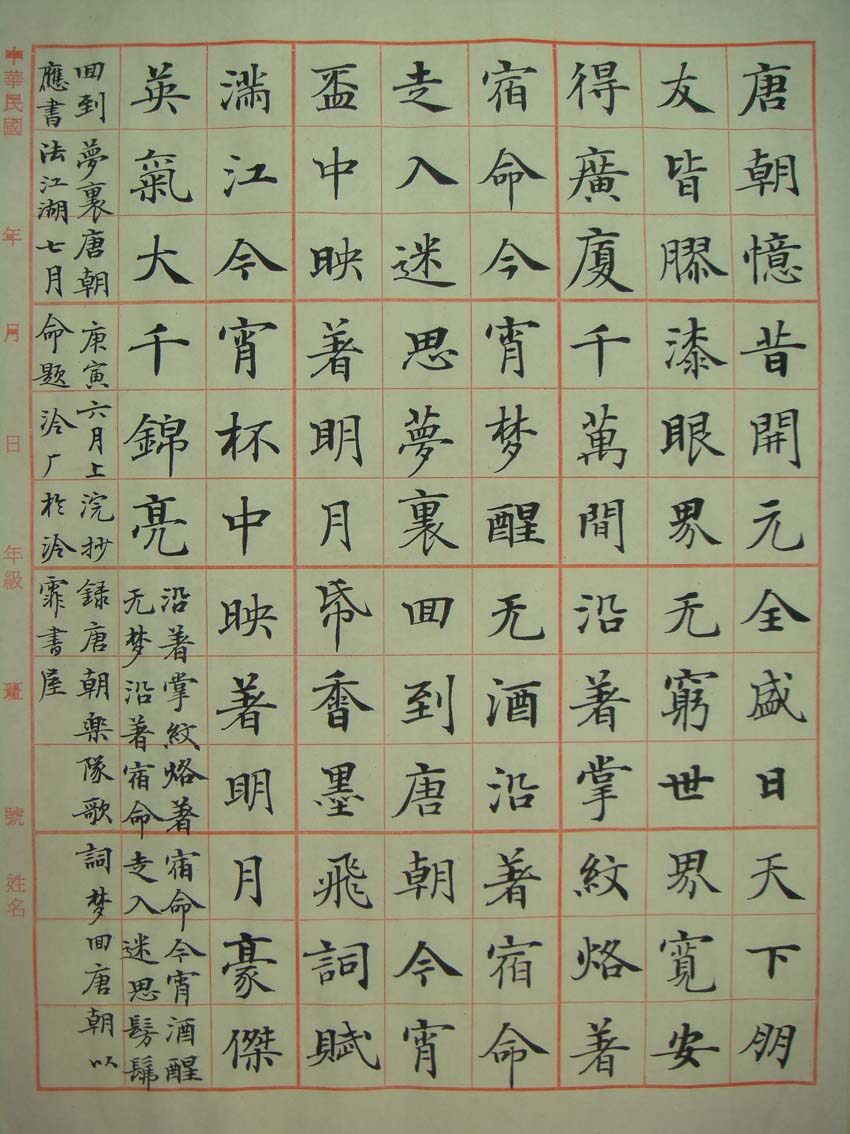 唐朝憶昔開元全盛日天下朋
友皆膠漆眼界无窮世界寬安
得廣廈千萬間沿著掌紋烙著
宿命今宵梦醒无酒沿著宿命
走入迷思夢裏回到唐朝今宵
盃中映著明月帋香墨飛詞賦
滿江今宵杯中映著明月豪傑
英氣大千錦亮
沿著掌紋烙著宿命今宵酒醒
无梦沿著宿命走入迷思髣髴
回到夢裏唐朝庚寅六月上浣抄録唐朝樂隊歌詞梦回唐朝以
應書法江湖七月命題泠厂於泠霏書屋
中華民國 年 月 日 年級 班 號 姓名